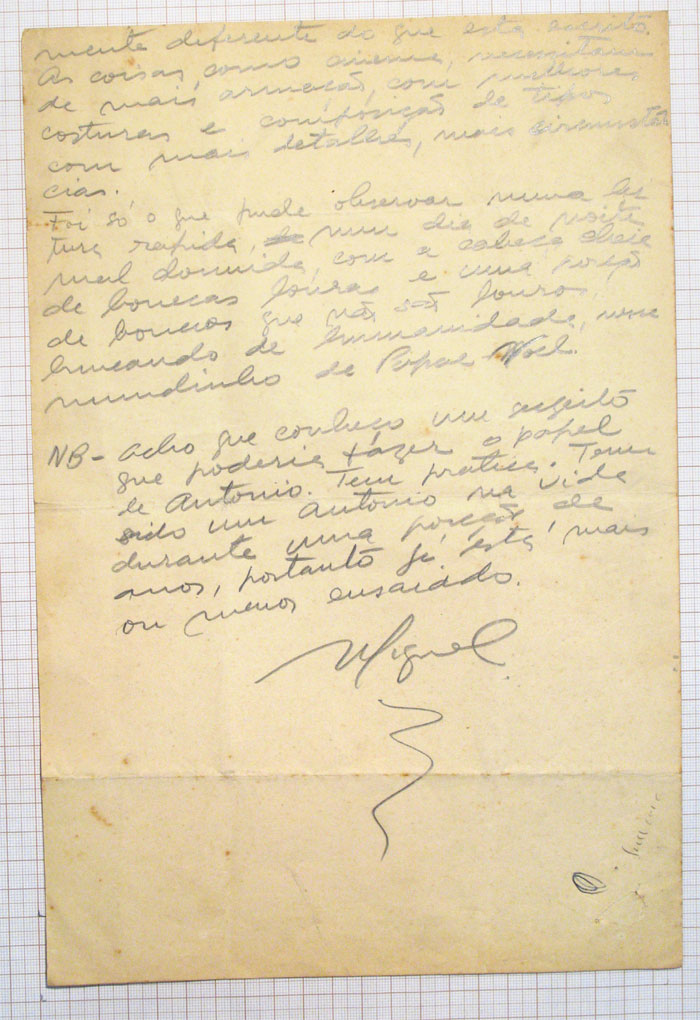 mente diferente do que esta escrito.
As coisas, como cinema, necessitam
de mais armação, com melhores
costuras e composição de tipos
com mais detalhes, mais circunstan
cias.
Foi só o que pude observar numa lei
tura rapida, de num dia de noite
mal dormida, com a cabeça cheia
de bonecas louras e uma porção
de bonecos que não são louros
brincando de humanidade, num
mundinho de Papae Noel.
NB- Acho que conheço um sugeito
que poderia fazer o papel
de Antonio. Tem pratica. Tem
sido um Antonio na vida
durante uma porção de
anos, portanto já está mais
ou menos ensaiado.
Miguel